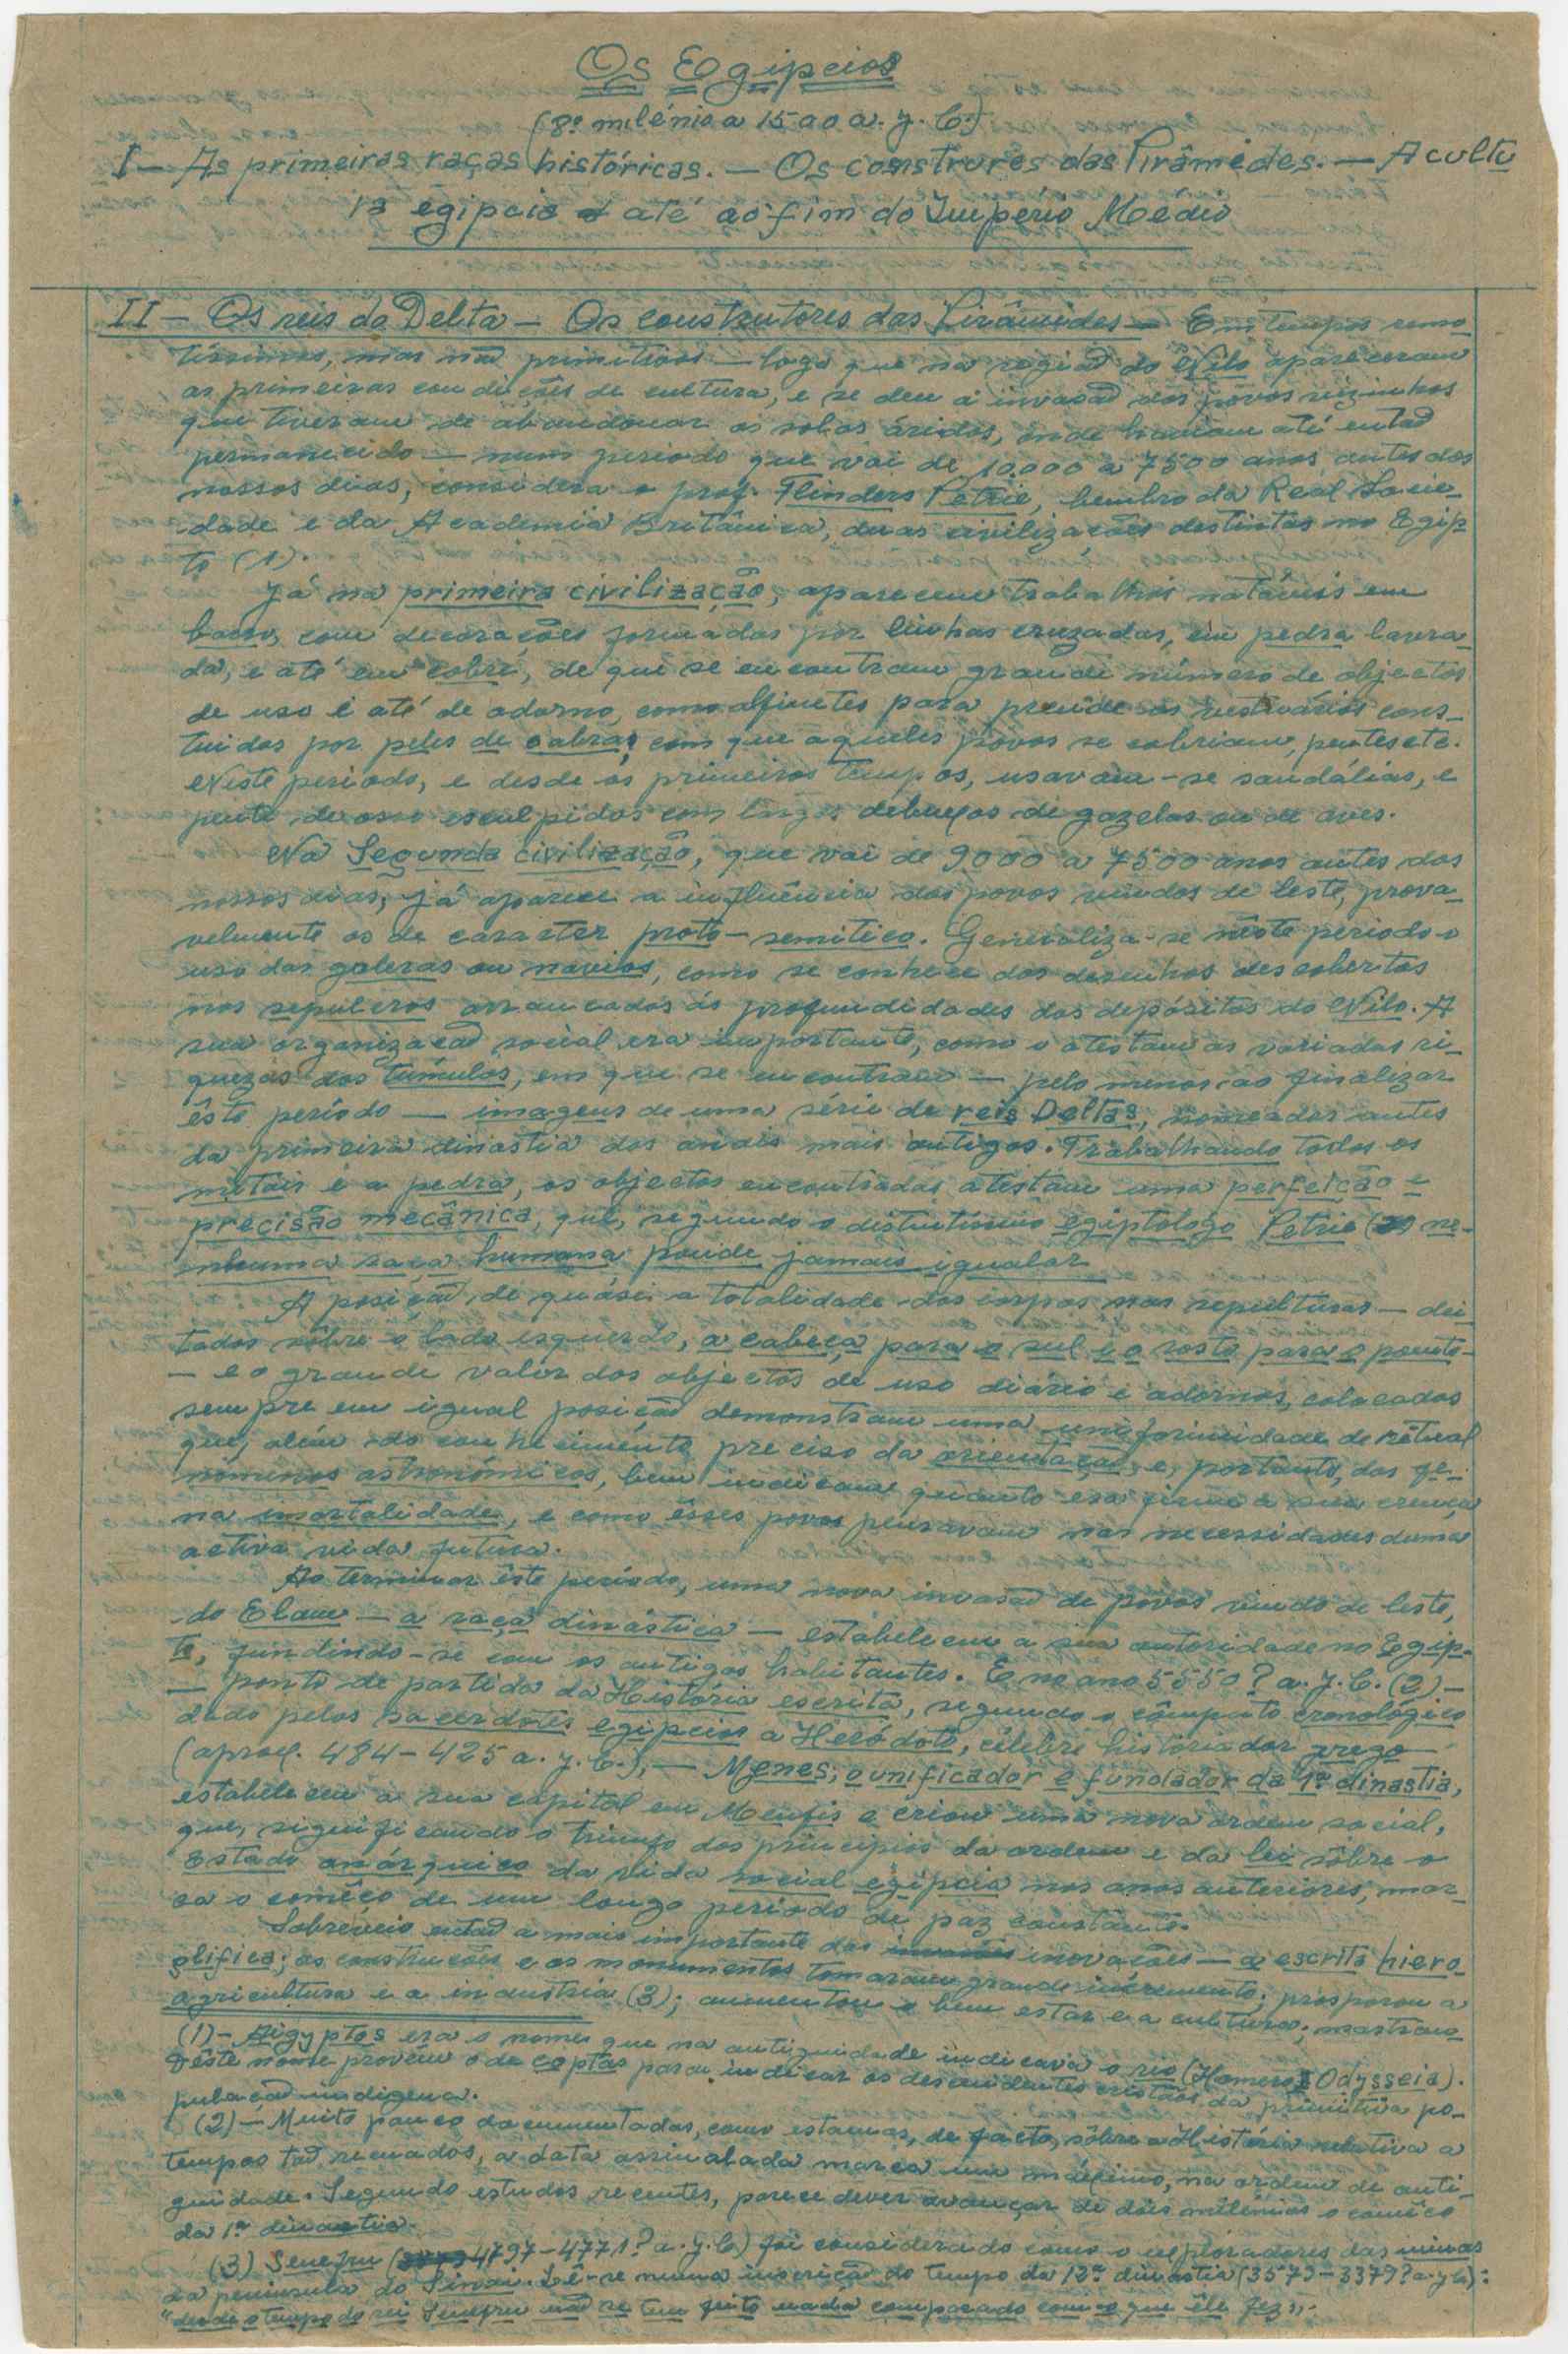 Os Egipcios
(8º milénio a 1500 a. J. C.)
I — As primeiras raças históricas. — Os construres das Pirâmides. — A cultu
ra egipcia até ao fim do Império Médio
II — Os reis do Delta — Os construtores das Pirâmides — Em tempos remo
tíssimos, mas não primitivos — logo que na região do Nilo apareceram
as primeiras condições de cultura, e se deu a invasão dos povos vizinhos
que tiveram de abandonar os solos áridos, onde haviam até então
permanecido — num periodo que vai de 10.000 a 7500 anos antes dos
nossos dias, considera o prof. Flinders Petrie, membro da Real Socie-
dade e da Academia Britânica, duas civilizações destintas no Egip
to (1).
Já na primeira civilização, aparecem trabalhos notáveis em
barro, com decorações formadas por linhas cruzadas, em pedra lavra
da, e até em cobre, de que se encontram grande número de objectos
de uso e até de adorno, como alfinetes para prender os vestuários cons-
tuidos por peles de cabras com que aqueles povos se cobriam, pentes etc.
Neste periodo, e desde os primeiros tempos, usavam-se sandálias, e
pente de osso esculpidos com longos debuxos de gazelas ou de aves.
Na Segunda civilização, que vai de 9000 a 7500 anos antes dos
nossos dias, já aparece a influência dos povos vindos de leste, prova-
velmente os de caracter proto-semitico. Generaliza-se nêste periodo o
uso das galeras ou navios, como se conhece dos desenhos descobertos
nos sepulcros arrancados ás profundidades dos depósitos do Nilo. A
sua organização social era importante, como o atestam as variadas ri-
quezas dos túmulos, em que se encontram — pelo menos ao finalizar
êste período — imagens de uma série de reis Deltas, nomeados antes
da primeira dinastia dos anais mais antigos. Trabalhando todos os
metais e a pedra, os objectos encontrados atestam uma perfeicão e
precisão mecânica, que, segundo o distintíssimo egiptologo Petrie ne-
nhuma raça humana poude jamais igualar
A posição de quási a totalidade dos corpos nas sepulturas — dei
tados sôbre o lado esquerdo, a cabeça para o sul e o rosto para o poente-
— e o grande valor dos objectos de uso diário e adornos, colocados
sempre em igual posição demonstram uma uniformidade de ritual
que, além do conhecimento preciso da orientação, e, portanto, dos fe-
nómenos astronómicos, bem indicam quanto era firme a sua crença
na imortalidade, e como êsses povos pensavam nas necessidades duma
activa vida futura.
Ao terminar êste período, uma nova invasão de povos vindo de leste,
do Elam — a raça dinástica — estabelecem a sua autoridade no Egip-
to, fundindo-se com os antigos habitantes. E no ano 5550? a. J. C. (2) —
— ponto de partida da História escrita, segundo o cômputo cronológico
dado pelos sacerdotes egipcios a Heródoto, célebre historiador grego
(aprox. 484-425 a. J. C.), — Menes, o unificador e fundador da 1ª dinastia,
estabeleceu a sua capital em Menfis e criou uma nova ordem social,
que, significando o triunfo dos principios da ordem e da lei sôbre o
Estado anárquico da vida social egipcia nos anos anteriores, mar-
ca o comêço de um longo período de paz constante.
Sobreveio então a mais importante das inovações — a escrita hiero
glifica; as construções e os monumentos tomaram grande incremento; prosperou a
agricultura e a industria (3); aumentou o bem estar e a cultura;
(1) — Aigyptos era o nome que na antiguidade indicava o rio (Homero Odysseia).
Dêste nome provém o de coptas para indicar os descendentes cristãos da primitiva po-
pulação indigena.
(2) — Muito pouco documentadas, como estamos, de facto, sôbre a História relativa a
tempos tão recuados, a data assinalada marca um máximo, na ordem de anti-
guidade. Segundo estudos recentes, parece dever avançar de dois milénios o comêço
da 1ª dinastia.
(3) Senefru (4797-4771? a. J. C) foi considerado como o exploradores das minas
da peninsula do Sinai. Lê-se numa inscrição do tempo da 12ª dinastia (3579-3379? a. J C):
"desde o tempo do rei Senefru não se tem feito nada comparado com o que êle fez".